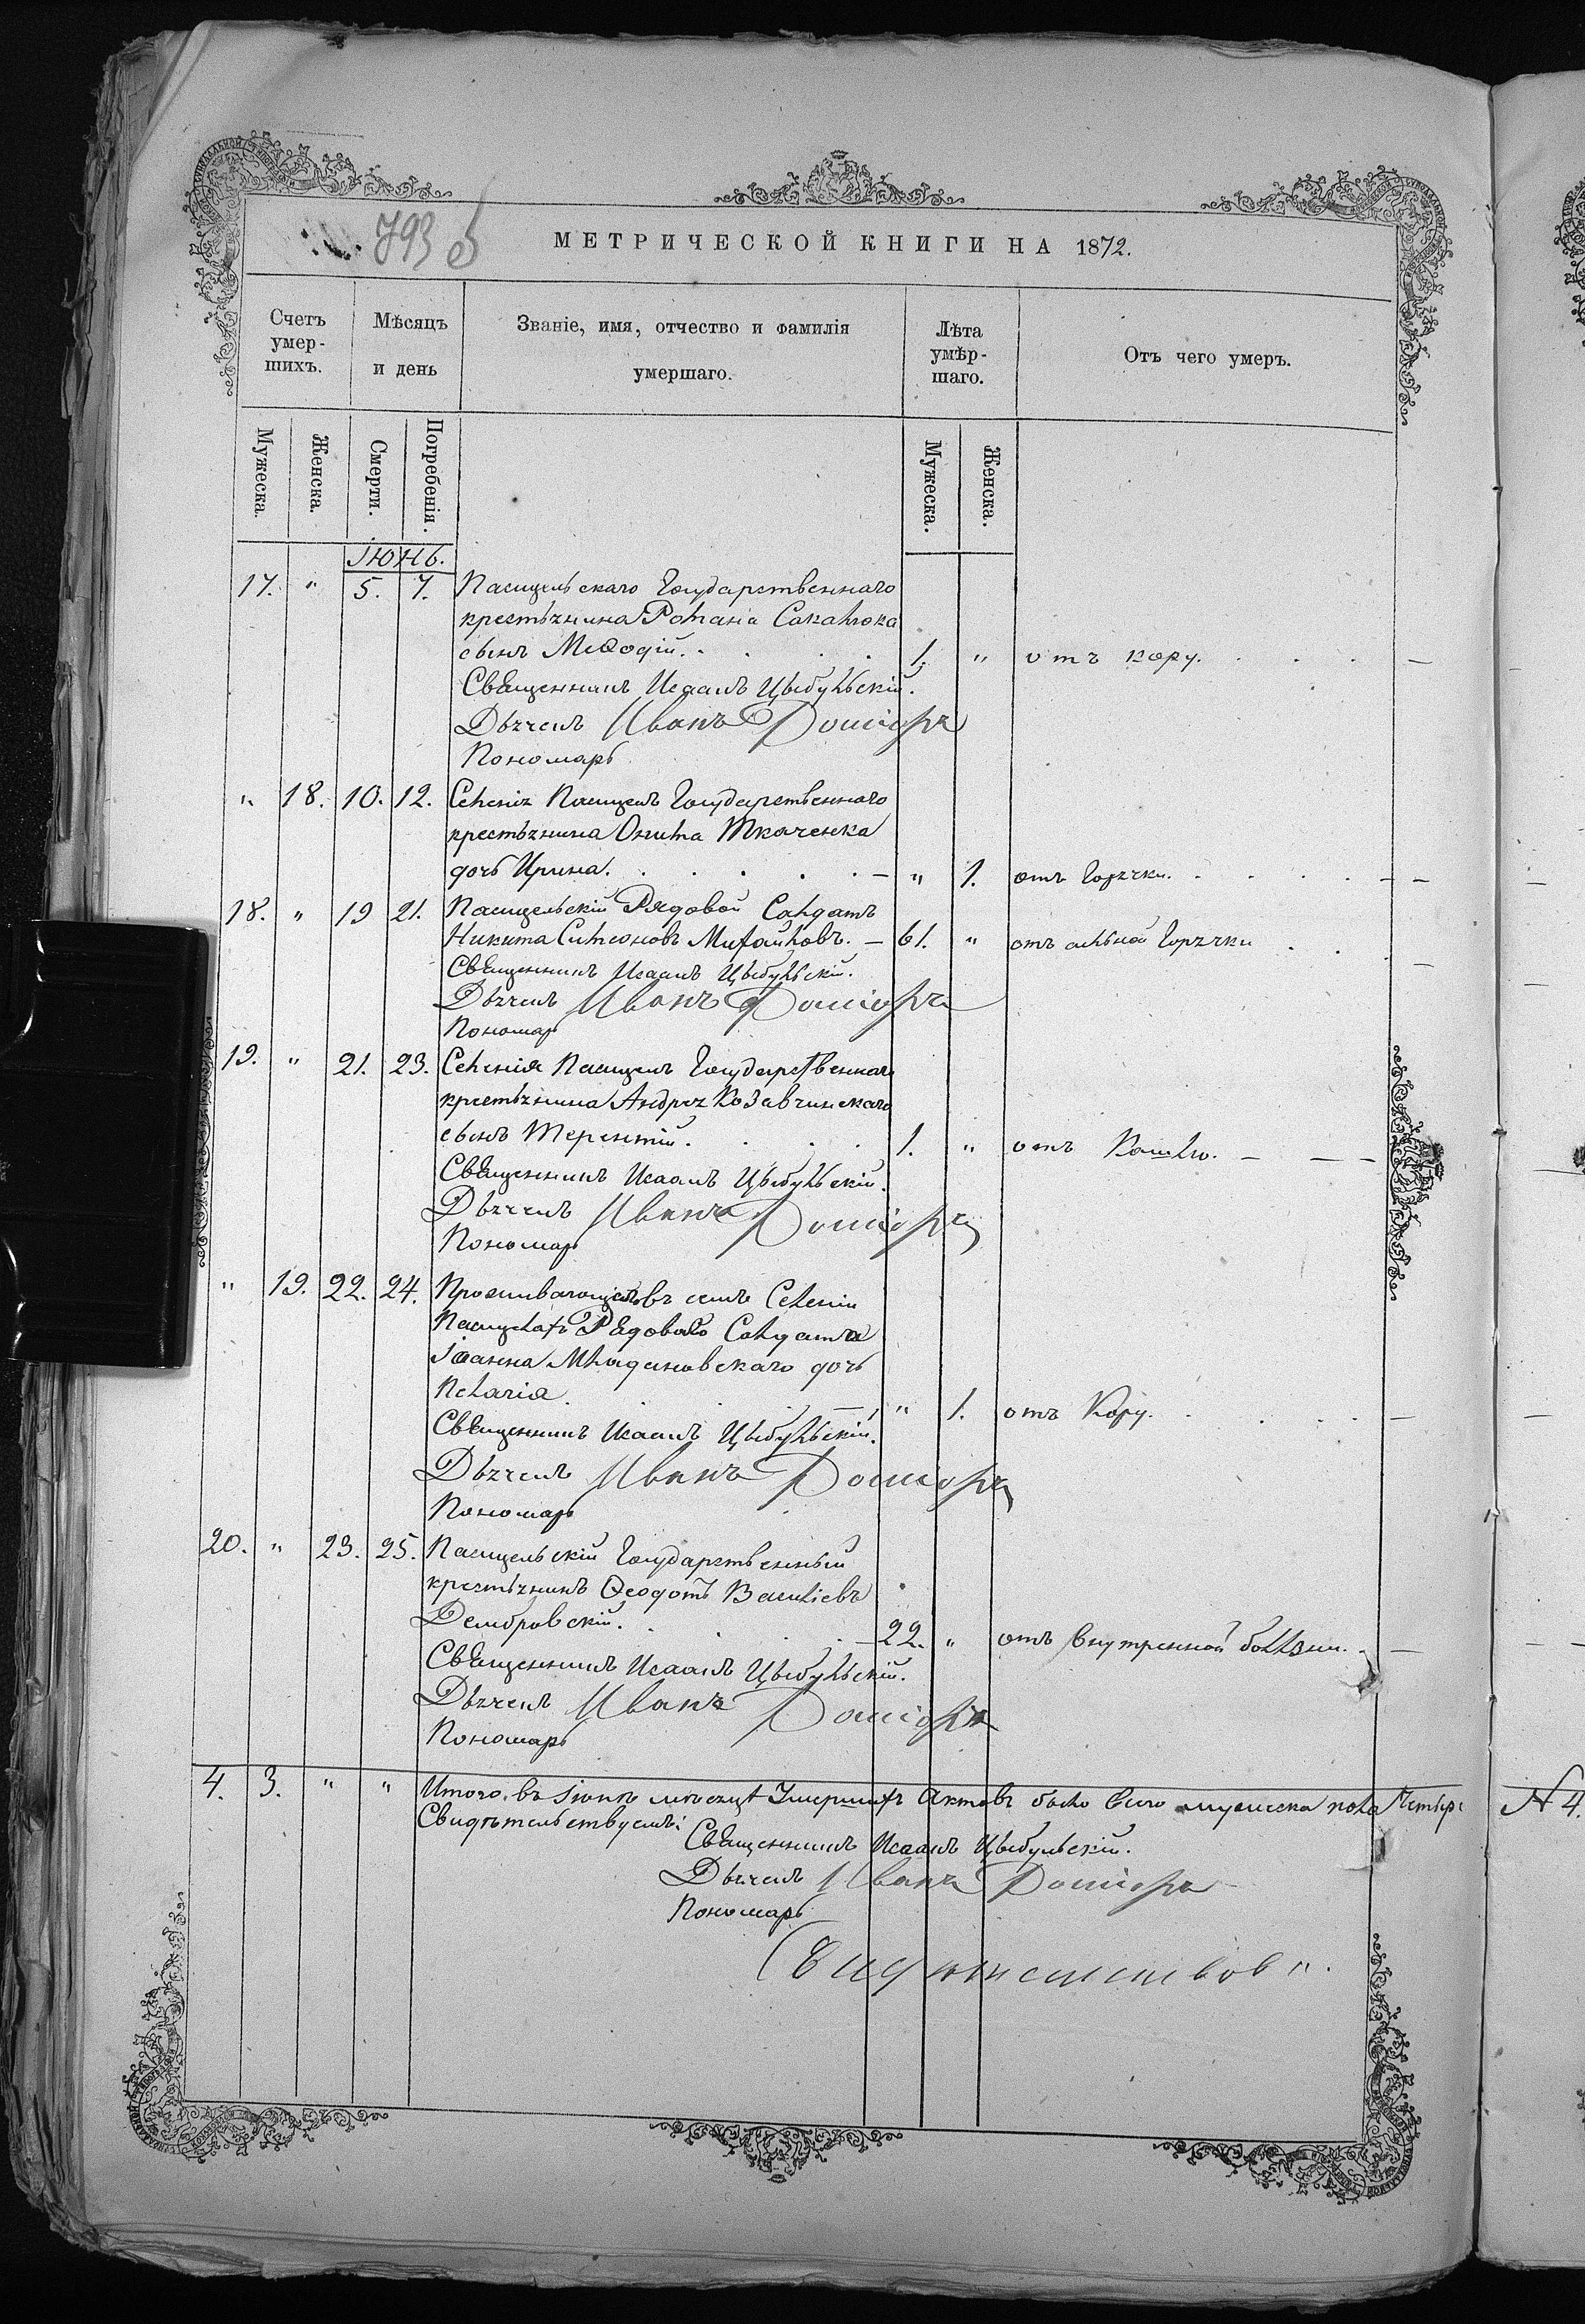 793 об
МЕТРИЧЕСКОЙ КНИГИ НА 1872.
Счетъ умер- шихъ. Мѣсяцъ и день Званіе, имя, отчество и фамилія умершаго. Лѣта умѣр- шаго. Отъ чего умеръ.
Мужеска. Женска. Смерти. Погребенія. Мужеска. Женска.
Іюнь.
17. " 5. 7. Пасицельскаго Государственнаго
крестьянина Романа Сакалюка
сынъ Меѳодій. 1. " отъ кору.
Священникъ Исаакъ Цыбульскій.
Дьячекъ Иванъ
Пономарь
" 18. 10. 12. Селенія Пасицелъ Государственнаго
крестьянина Ткаченка
дочь Ирина. " 1. отъ Горячки.
18. " 19 21. Пасицельскій Рядовой Солдатъ
Никита Симеоновъ Михайловъ. 61. " отъ сильной Горячки
Священникъ Исаакъ Цыбульскій.
Дьячекъ Иванъ
Пономарь
19. " 21. 23. Селенія Пасицелъ Государственнаго
крестьянина Андрея Козавчинскаго
сынъ Терентій. 1. " отъ Кашлю.
Священникъ Исаакъ Цыбульскій.
Дьячекъ Иванъ
Пономарь
" 19. 22. 24. Проживающаго въ семъ Селеніи
Пасицелахъ Рядоваго Солдата
Іоанна Младиновскаго дочь
Пелагія. " 1. отъ Кору.
Священникъ Исаакъ Цыбульскій.
Дьячекъ Иванъ
Пономарь
20. " 23. 25. Пасицельскій Государственный
крестьянинъ Ѳеодотъ Василіевъ
Домбровскій. 22. " отъ Внутренной болѣзни.
Священникъ Исаакъ Цыбульскій.
Дьячекъ Иванъ
Пономарь
4. 3. " " Итого въ Іюнѣ мѣсяцѣ Умершихъ Актовъ было всего мужеска пола Четыре № 4.
Свидѣтельствуемъ:
Священникъ Исаакъ Цыбульскій.
Дьячекъ Иванъ
Пономарь